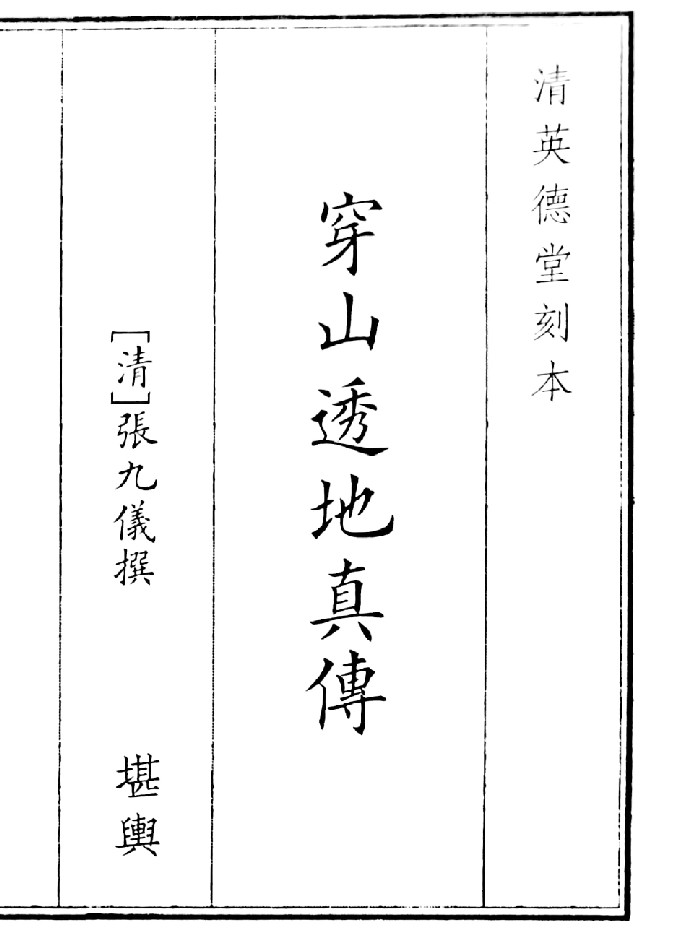 清英德堂刻本
穿山透地真傳
[清]張九儀撰
堪輿